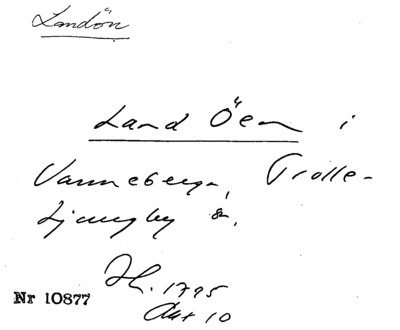 Landön
Land Öen i
Vanneberga, Trolle-
Ljungby sn.
Nr 10877
H. 1795
Akt 10